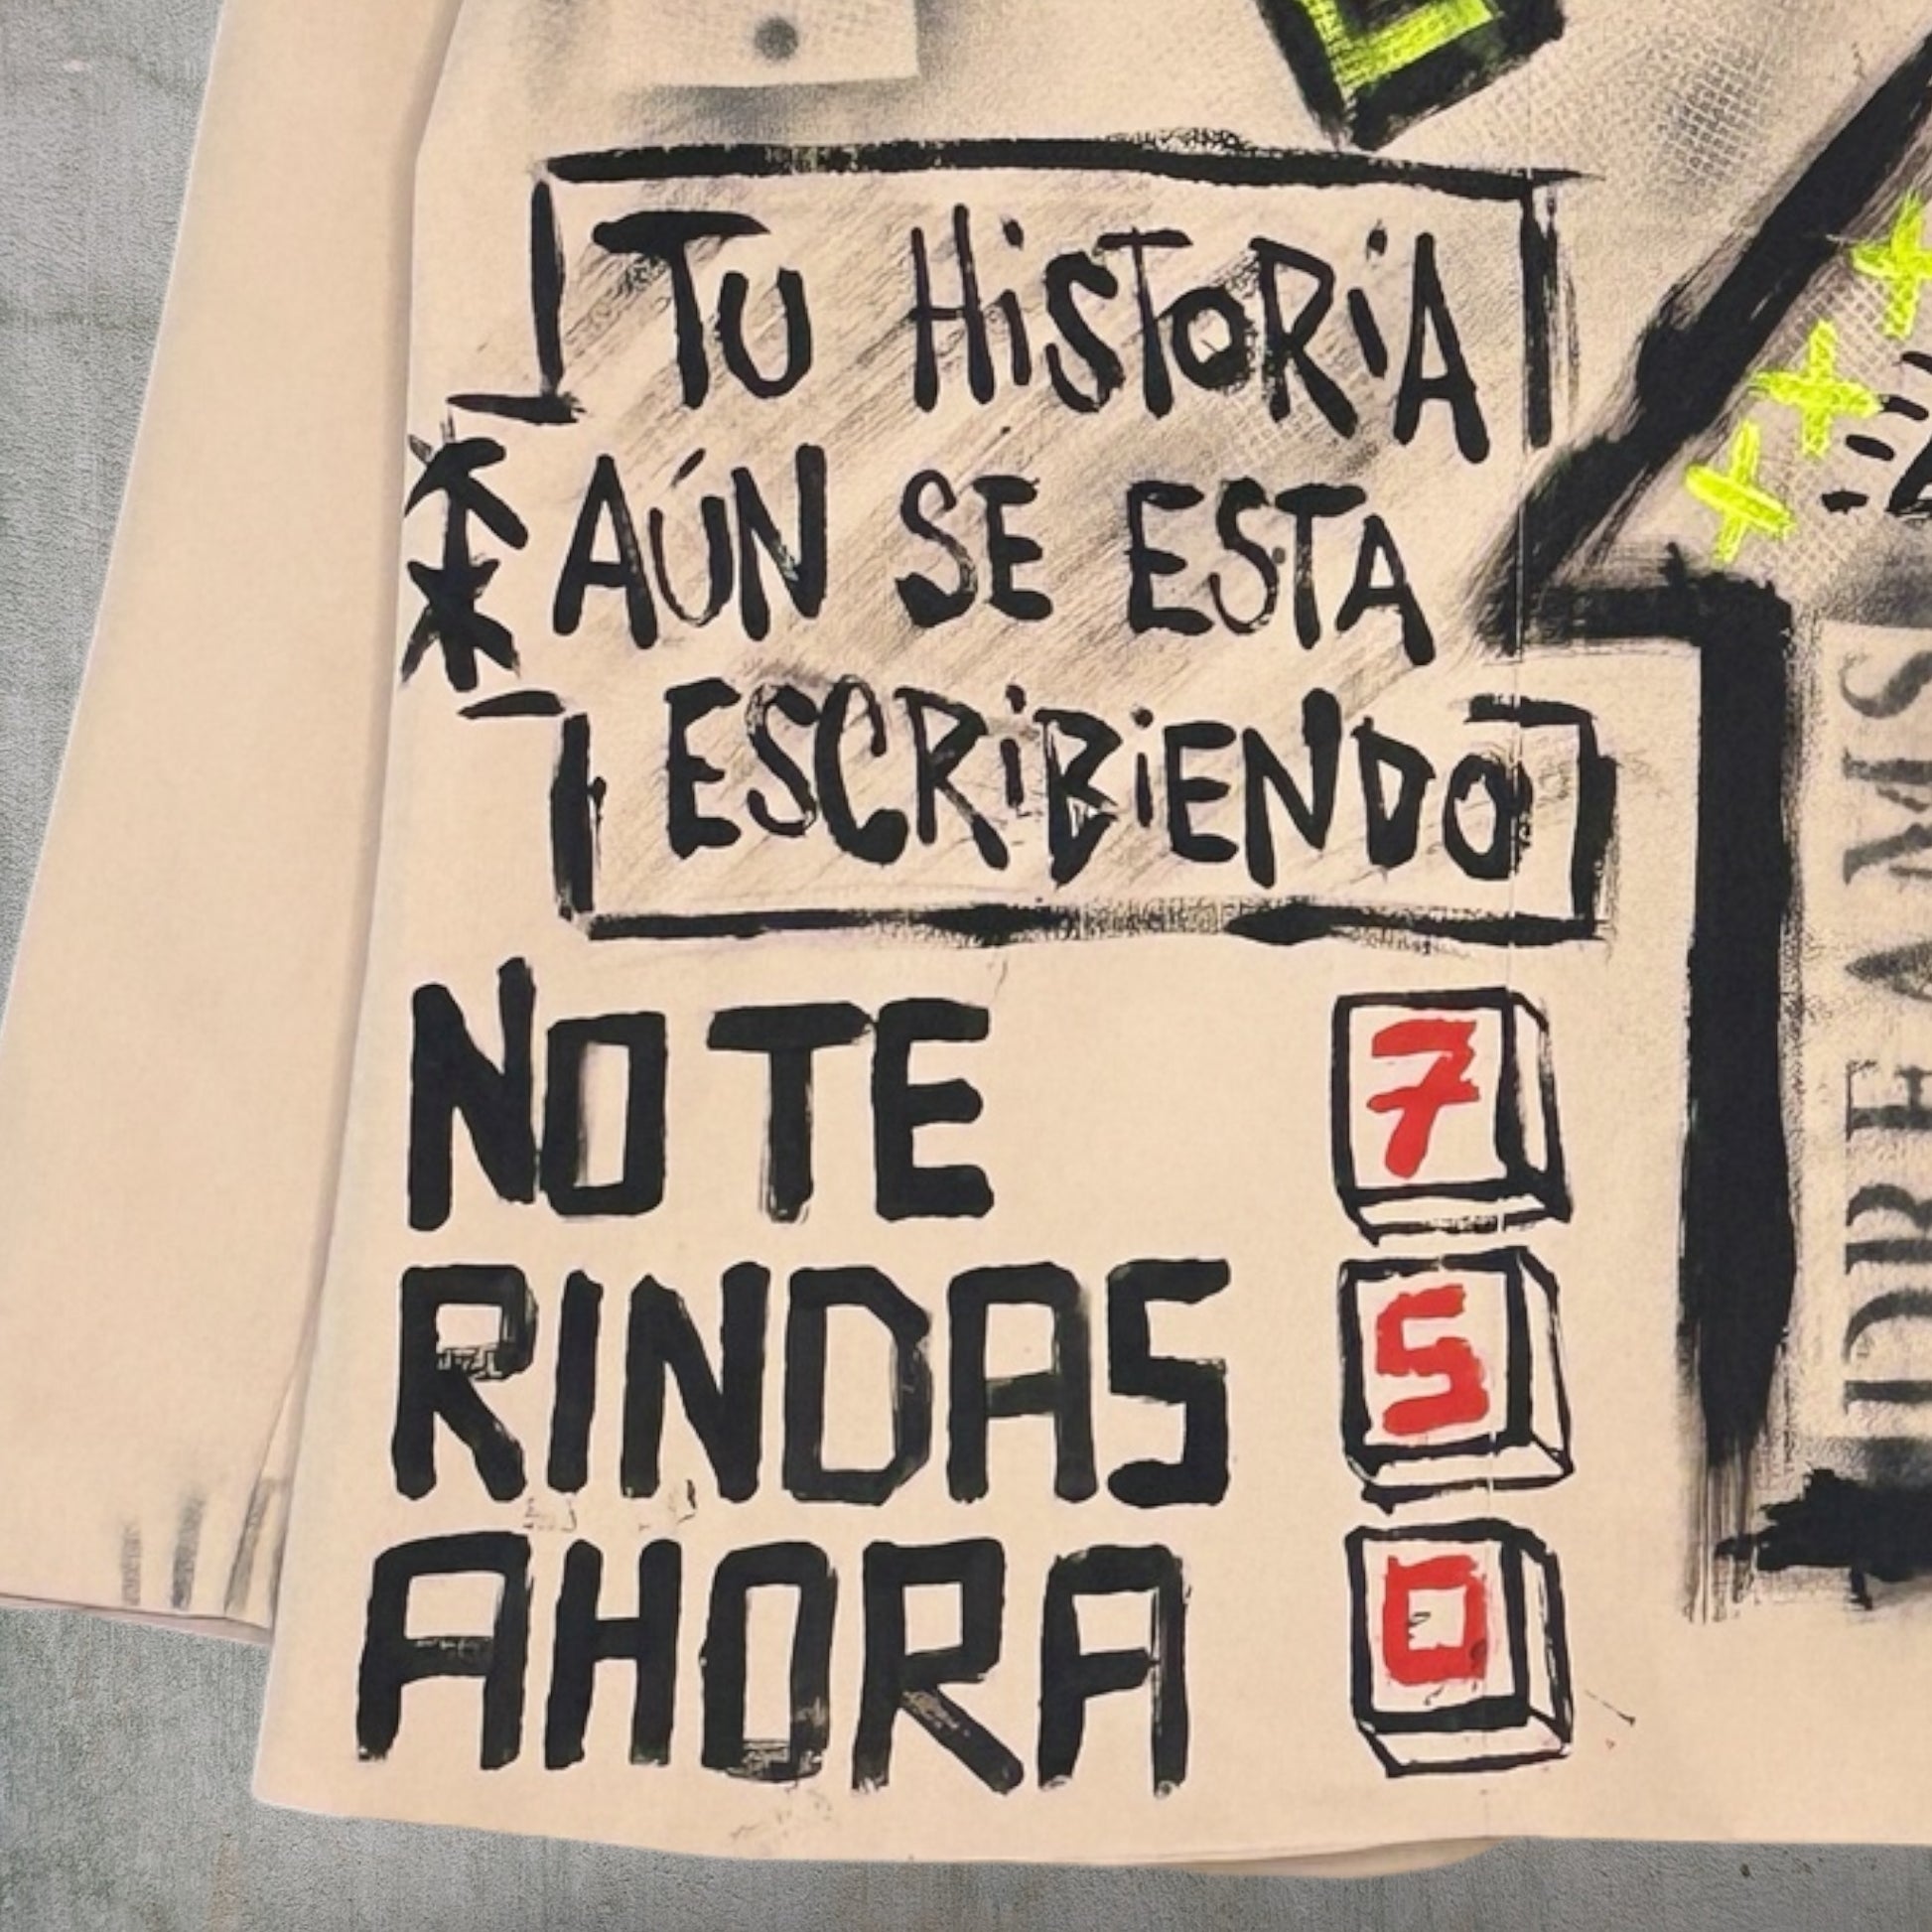 TU HiSTORiA
AÚN SE ESTA
ESCRiBiENDO
NO TE
RINDAS
AHORA
7
5
0
DREAMS